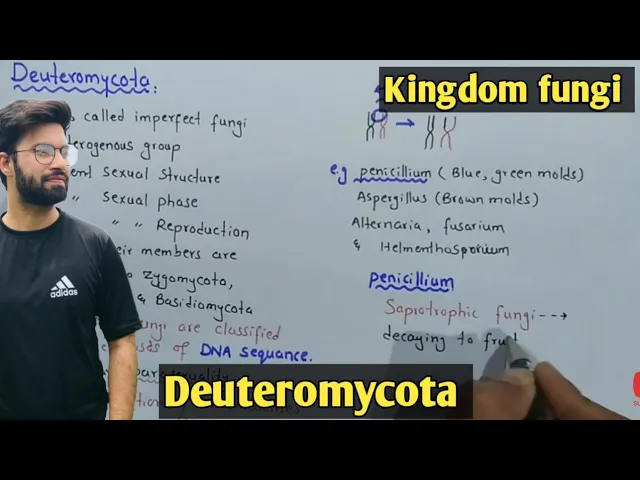 Deuteromycota:
called imperfect fungi
erogenous group
Sexual Structure
" Sexual phase
" " Reproduction
eir members are
Zygomycota,
& Basidiomycota
ungi are classified
of DNA sequance.
Kingdom fungi
e.g penicillium (Blue, green molds)
Aspergillus (Brown molds)
Alternaria, fusarium
& Helmenthosporium
penicillium
Saprotrophic fungi --→
decaying to fru
adidas
Deuteromycota